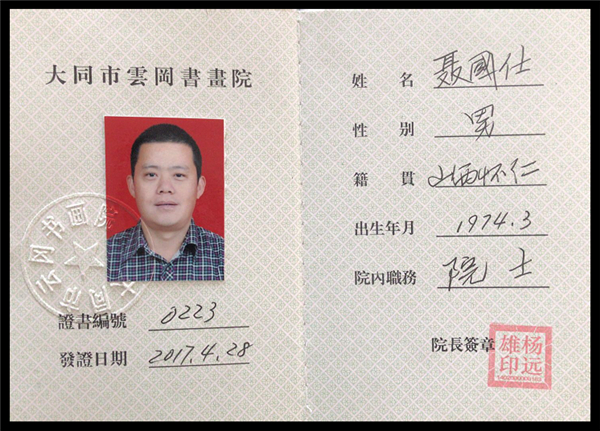 大同市雲岡書畫院
大同市云冈书画院
證書編號 0223
發證日期 2017.4.28
姓名 聂國仕
性別 男
籍貫 山西怀仁
出生年月 1974.3
院內職務 院士
院長簽章
杨远雄印